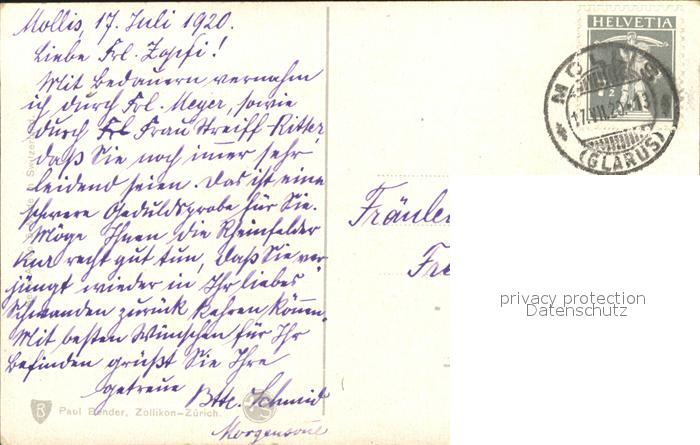 Mollis, 17. Juli 1920.
Liebe Frl. Zopfi!
Mit Bedauern vernahm
ich durch Frl. Meyer, sowie
durch Frl Frau Streiff-Ritter,
daß Sie noch immer sehr
leidend seien. Das ist eine
schwere Geduldsprobe für Sie.
Möge Ihnen die Rheinfelder
Kur recht gut tun, daß Sie ver-
jüngt wieder in Ihr liebes
Schwanden zurück kehren können.
Mit besten Wünschen für Ihr
Befinden grüßt Sie Ihre
getreue
Btte. Schmid
HELVETIA
MOLLIS
17.VII.20.-13
(GLARUS)
Fräulein
privacy protection
Datenschutz
B Paul Bender, Zollikon-Zürich.